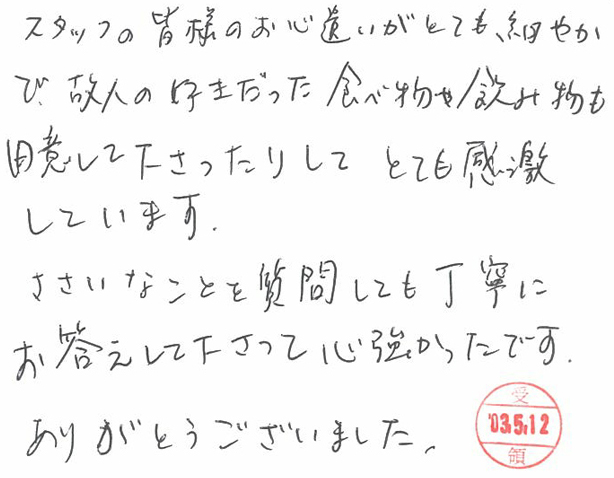 スタッフの皆様のお心遣いがとても、細やか
で、故人の好きだった食べ物や飲み物も
用意して下さったりして とても感激
しています.
ささいなことを質問しても丁寧に
お答えして下さって心強かったです.
ありがとうございました。
受
'03.5.12
領